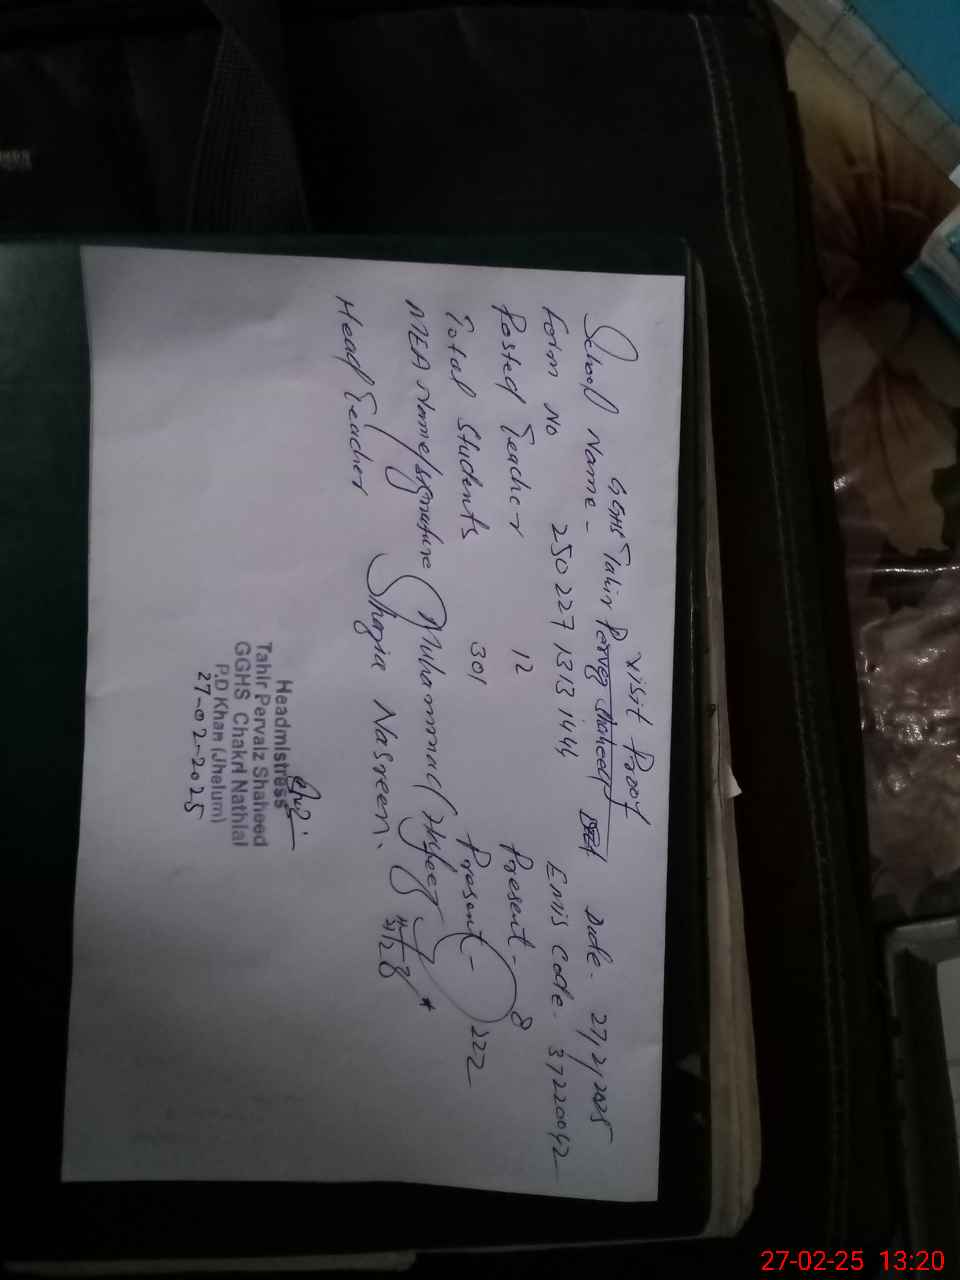 Visit Proof
School Name - GGHS Tahir Pervez Shaheed Date - 27/2/2025
Form No 250227131441 Emis Code - 37220042
Posted Teacher 12 Present - 8
Total Students 301 Present - 222
MEA Name/signature Muhammad
Head Teacher Shazia Nasreen.
Headmistress
Tahir Pervaiz Shaheed
GGHS Chakri Nathial
P.D Khan (Jhelum)
27-02-2025
27-02-25 13:20